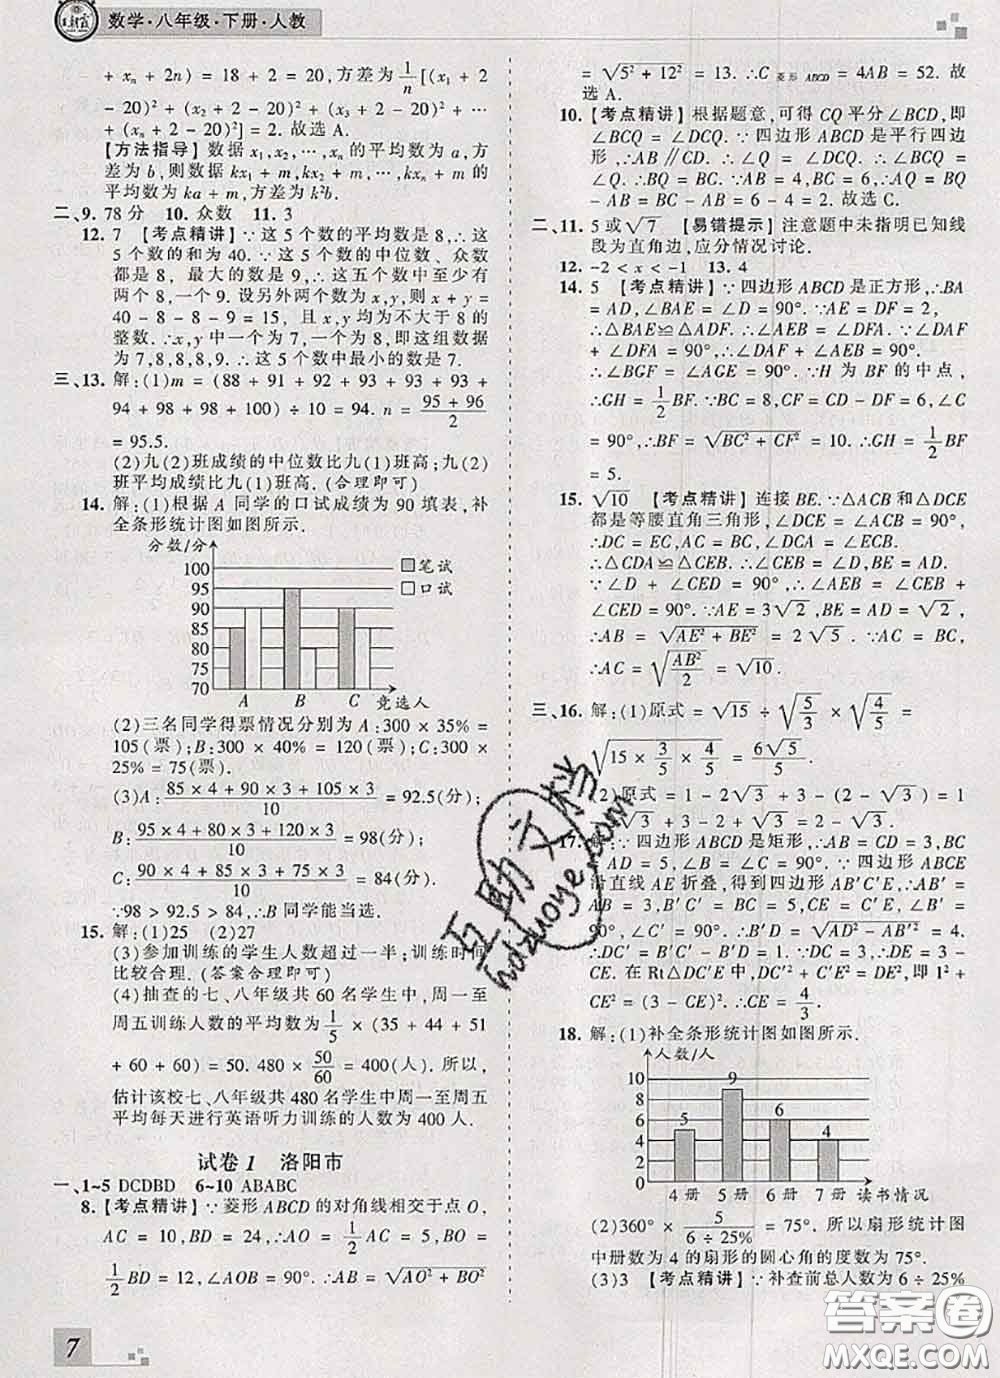 数学·八年级·下册·人教
+ xₙ + 2n) = 18 + 2 = 20,方差为 1/n [(x₁ + 2
- 20)² + (x₂ + 2 - 20)² + (x₃ + 2 - 20)² + ⋯
+ (xₙ + 2 - 20)²] = 2. 故选 A.
【方法指导】数据 x₁,x₂,⋯,xₙ 的平均数为 a,方
差为 b,则数据 kx₁ + m,kx₂ + m,⋯,kxₙ + m 的
平均数为 ka + m,方差为 k²b.
二、9. 78 分 10. 众数 11. 3
12. 7 【考点精讲】∵这 5 个数的平均数是 8,∴这
5 个数的和为 40. ∵这 5 个数的中位数、众数
都是 8, 最大的数是 9,∴这五个数中至少有
两个 8,一个 9. 设另外两个数为 x,y,则 x + y =
40 - 8 - 8 - 9 = 15, 且 x,y 均为不大于 8 的
整数. ∴x,y 中一个为 7,一个为 8,即这组数据
为 7,8,8,8,9. ∴这 5 个数中最小的数是 7.
三、13. 解:(1)m = (88 + 91 + 92 + 93 + 93 + 93 +
94 + 98 + 98 + 100) ÷ 10 = 94. n = (95 + 96)/2
= 95.5.
(2)九(2)班成绩的中位数比九(1)班高;九(2)
班平均成绩比九(1)班高. (合理即可)
14. 解:(1)根据 A 同学的口试成绩为 90 填表, 补
全条形统计图如图所示.
分数/分
100
95
90
85
80
75
70
笔试
口试
A B C 竞选人
(2)三名同学得票情况分别为 A:300 × 35% =
105(票);B:300 × 40% = 120(票);C:300 ×
25% = 75(票).
(3)A: (85 × 4 + 90 × 3 + 105 × 3)/10 = 92.5(分);
B: (95 × 4 + 80 × 3 + 120 × 3)/10 = 98(分);
C: (90 × 4 + 85 × 3 + 75 × 3)/10 = 84(分).
∵98 > 92.5 > 84,∴B 同学能当选.
15. 解:(1)25 (2)27
(3)参加训练的学生人数超过一半;训练时间
比较合理. (答案合理即可)
(4)抽查的七、八年级共 60 名学生中,周一至
周五训练人数的平均数为 1/5 × (35 + 44 + 51
+ 60 + 60) = 50. 480 × 50/60 = 400(人). 所以,
估计该校七、八年级共 480 名学生中周一至周五
平均每天进行英语听力训练的人数为 400 人.
试卷 1 洛阳市
一、1~5 DCDBD 6~10 ABABC
8. 【考点精讲】∵菱形 ABCD 的对角线相交于点 O,
AC = 10,BD = 24,∴AO = 1/2 AC = 5,BO =
1/2 BD = 12,∠AOB = 90°. ∴AB = √(AO² + BO²)
= √(5² + 12²) = 13. ∴C菱形ABCD = 4AB = 52. 故
选 A.
10. 【考点精讲】根据题意,可得 CQ 平分∠BCD,即
∠BCQ = ∠DCQ. ∵四边形 ABCD 是平行四边
形,∴AB∥CD. ∴∠Q = ∠DCQ. ∴∠BCQ =
∠Q. ∴BQ = BC. ∵AB = 4,BC = 6,∴AQ = BQ -
AB = BC - AB = 6 - 4 = 2. 故选 C.
二、11. 5 或√7 【易错提示】注意题中未指明已知线
段为直角边,应分情况讨论.
12. -2 < x < -1 13. 4
14. 5 【考点精讲】∵四边形 ABCD 是正方形,∴BA
= AD,∠BAE = ∠D = 90°. ∵AE = DF = 2,
∴△BAE≌△ADF. ∴∠AEB = ∠DFA. ∵∠DAF
+ ∠DFA = 90°. ∴∠DAF + ∠AEB = 90°.
∴∠BGF = ∠AGE = 90°. ∵H 为 BF 的中点,
∴GH = 1/2 BF. ∵BC = 8,CF = CD - DF = 6,∠C
= 90°,∴BF = √(BC² + CF²) = 10. ∴GH = 1/2 BF
= 5.
15. √10 【考点精讲】连接 BE. ∵△ACB 和△DCE
都是等腰直角三角形,∠DCE = ∠ACB = 90°,
∴DC = EC,AC = BC,∠DCA = ∠ECB.
∴△CDA≌△CEB. ∴∠CEB = ∠D,BE = AD.
∵∠D + ∠CED = 90°,∴∠AEB = ∠CEB +
∠CED = 90°. ∵AE = 3√2,BE = AD = √2,
∴AB = √(AE² + BE²) = 2√5. ∵AC = BC,
∴AC = √(AB²/2) = √10.
三、16. 解:(1)原式 = √15 ÷ √(5/3) × √(4/5) =
√(15 × 3/5 × 4/5) = 6√5/5.
(2)原式 = 1 - 2√3 + 3 - (2 - √3) = 1
- 2√3 + 3 - 2 + √3 = 2 - √3.
17. 解:∵四边形 ABCD 是矩形,∴AB = CD = 3,BC
= AD = 5,∠B = ∠C = 90°. ∵四边形 ABCE
沿直线 AE 折叠,得到四边形 AB′C′E,∴AB′ =
AB = 3,CE = C′E,B′C′ = BC = 5,∠B′ = ∠B =
90°,∠C′ = 90°. ∴B′D = √(AD² - AB′²) = 4.
∴DC′ = B′C′ - B′D = 1. ∴DE = DC - CE =
3 - CE. 在 Rt△DC′E 中,DC′² + C′E² = DE²,即 1² +
CE² = (3 - CE)². ∴CE = 4/3.
18. 解:(1)补全条形统计图如图所示.
人数/人
10
8
6
4
2
0
5 9 6 4
4 册 5 册 6 册 7 册 读书情况
(2)360° × 5/(6 ÷ 25%) = 75°. 所以扇形统计图
中册数为 4 的扇形的圆心角的度数为 75°.
(3)3 【考点精讲】∵补查前总人数为 6 ÷ 25%
7
互助文档
hdzuoye.com
答案圈
MXQE.COM